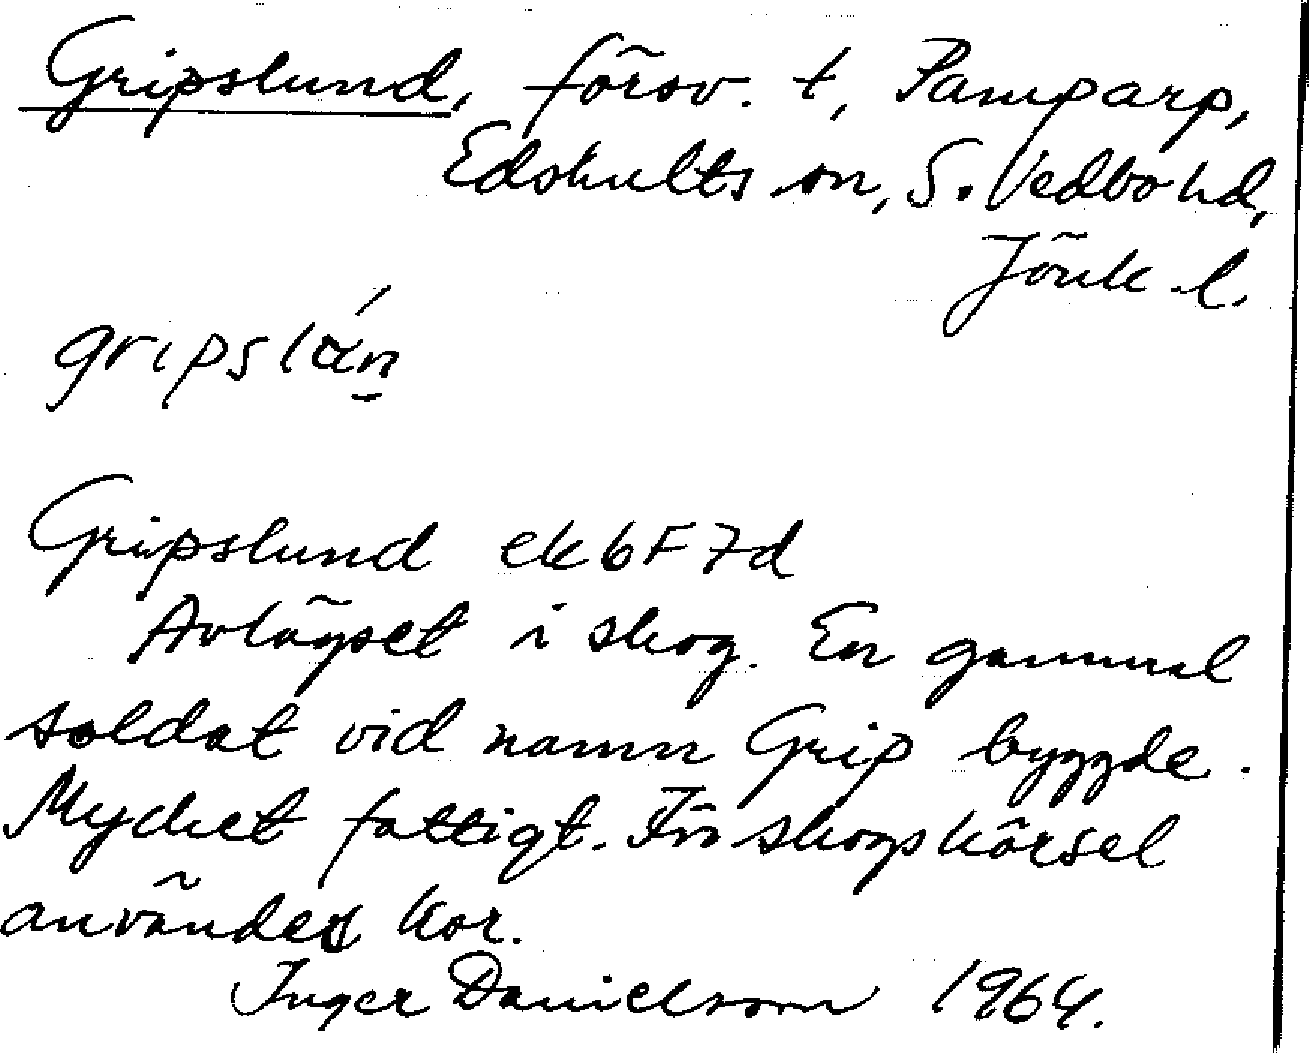 Gripslund, försv. t, Pamparp,
Edshults sn, S. Vedbo hd,
Jönk l.
gripslán
Gripslund ekb F 7d
Avlägset i skog. En gammal
soldat vid namn Grip byggde.
Mycket fattigt. För skogskörsel
användes kor.
Inger Danielsson 1964.